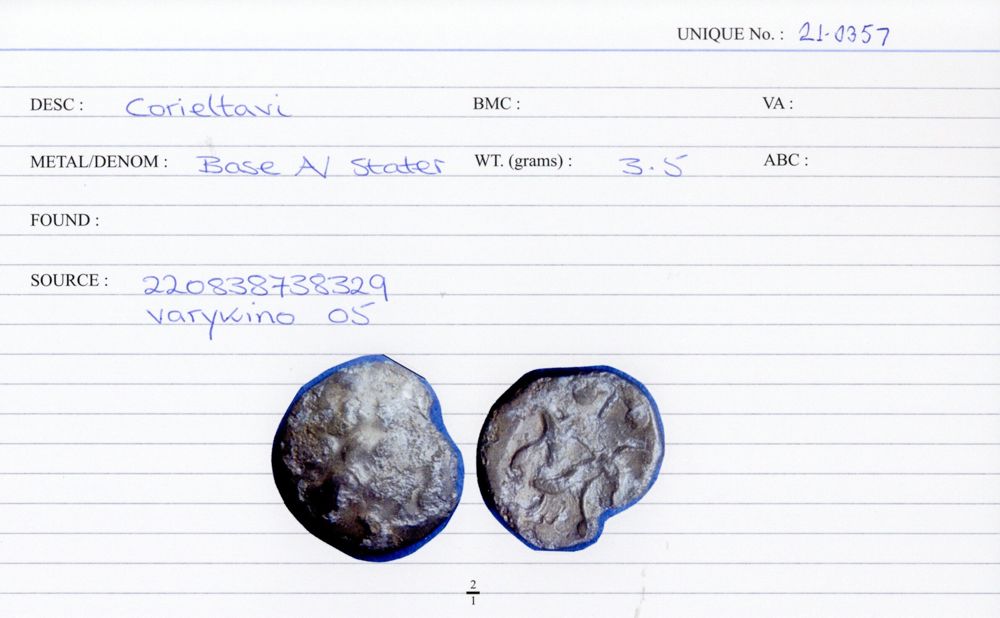 UNIQUE No. : 21-0357
DESC : Corieltavi BMC : VA :
METAL/DENOM : Base A/ Stater WT. (grams) : 3.5 ABC :
FOUND :
SOURCE : 220838738329
varykino 05
2
1